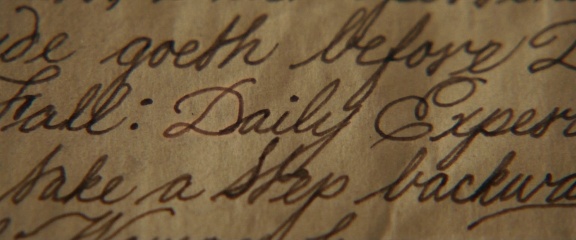 de goeth before
Fall: Daily Exper
take a step backwa